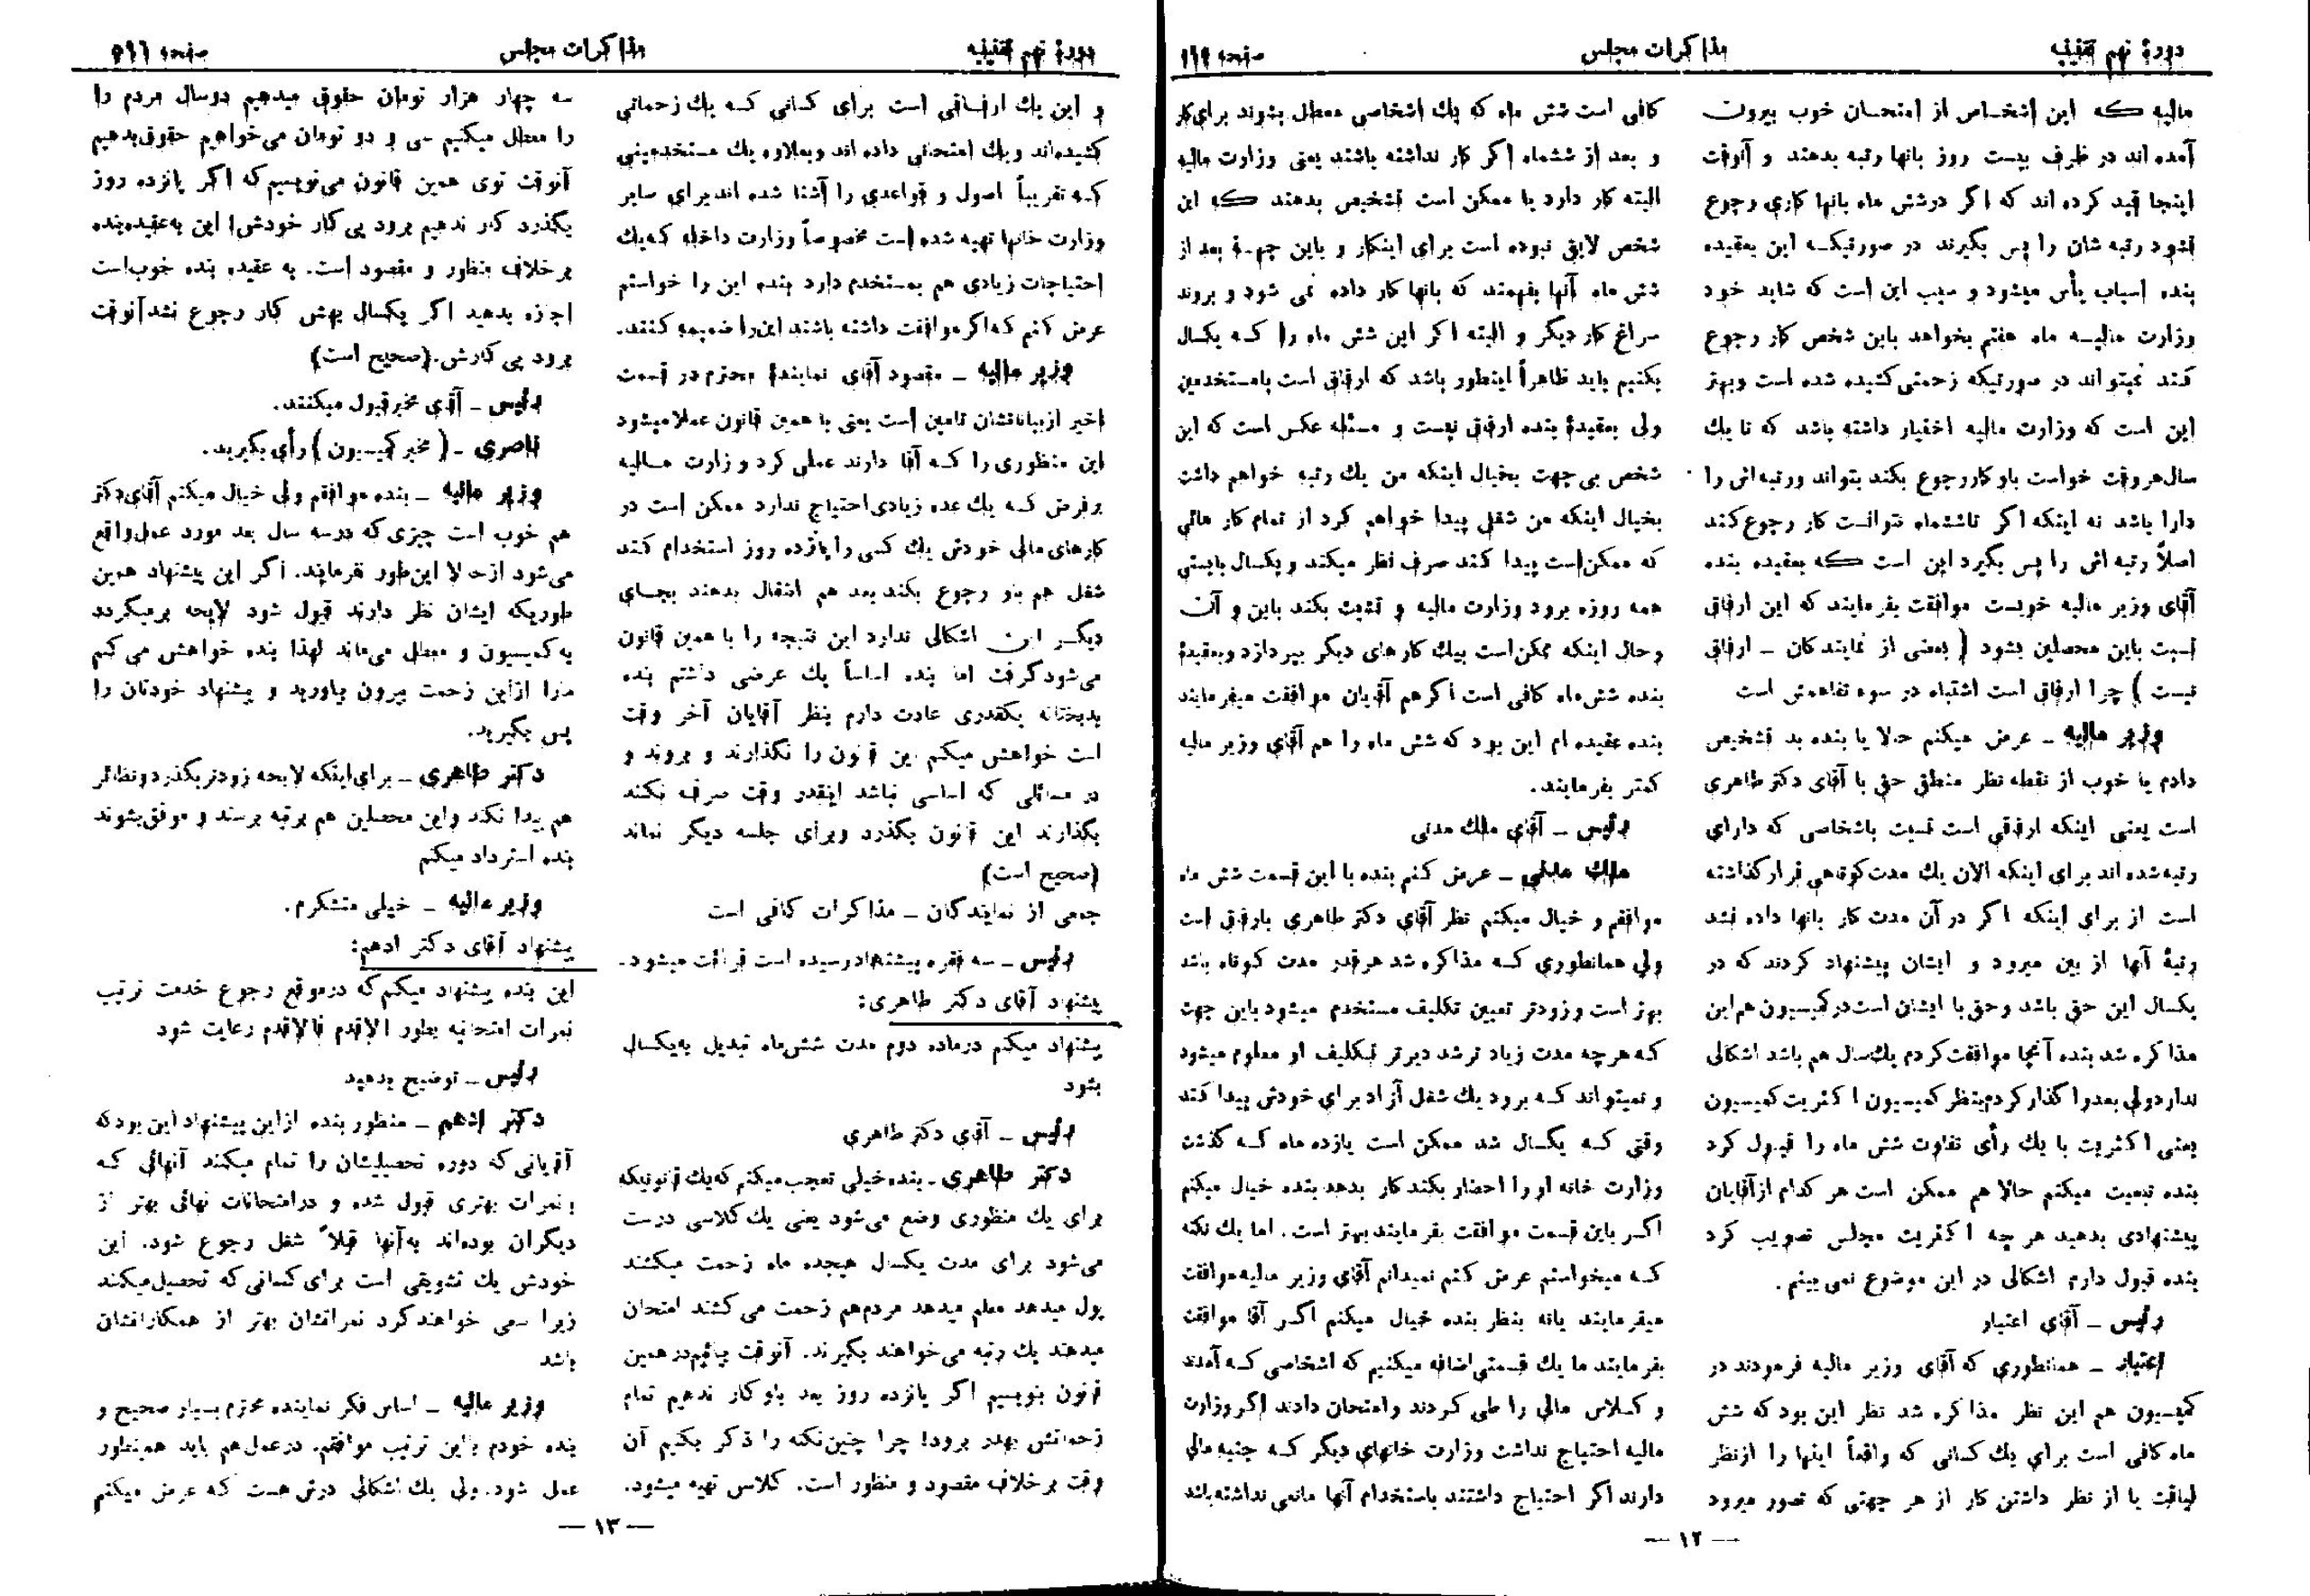 دورهٔ نهم تقنینیه
مذاکرات مجلس
صفحه
مالیه که این اشخاص از امتحان خوب بیرون
آمده اند در ظرف بیست روز بانها رتبه بدهند و آنوقت
اینجا قید کرده اند که اگر درشش ماه بانها کاری رجوع
نشود رتبه شان را پس بگیرند در صورتیکه این بعقیده
بنده اسباب یأس میشود و سبب این است که شاید خود
وزارت مالیه ماه هفتم بخواهد باین شخص کار رجوع
کند نمیتواند در صورتیکه زحمتی کشیده شده است وبهتر
این است که وزارت مالیه اختیار داشته باشد که تا یك
سال هروقت خواست باو کار رجوع بکند بتواند ورتبه اش را
دارا باشد نه اینکه اگر تاششماه نتوانست کار رجوع کند
اصلاً رتبه اش را پس بگیرد این است که بعقیده بنده
آقای وزیر مالیه خوبست موافقت بفرمایند که این ارفاق
نسبت باین محصلین بشود (بعضی از نمایندکان ـ ارفاق
نیست) چرا ارفاق است اشتباه در سوء تفاهمش است
وزیر مالیه ـ عرض میکنم حالا یا بنده بد تشخیص
دادم یا خوب از نقطه نظر منطق حق با آقای دکتر طاهری
است یعنی اینکه ارفاقی است نسبت باشخاصی که دارای
رتبه شده اند برای اینکه الان یك مدت کوتاهی قرار گذاشته
است از برای اینکه اگر در آن مدت کار بانها داده نشد
رتبهٔ آنها از بین میرود و ایشان پیشنهاد کردند که در
یکسال این حق باشد وحق با ایشان است در کمیسیون هم این
مذاکره شد بنده آنجا موافقت کردم یك سال هم باشد اشکالی
ندارد ولی بعد واگذار کردم بنظر کمیسیون اکثریت کمیسیون
یعنی اکثریت با یك رأی تفاوت شش ماه را قبول کرد
بنده تبعیت میکنم حالا هم ممکن است هر کدام از آقایان
پیشنهادی بدهید هر چه اکثریت مجلس تصویب کرد
بنده قبول دارم اشکالی در این موضوع نمی بینم.
رئیس ـ آقای اعتبار
اعتبار ـ همانطوری که آقای وزیر مالیه فرمودند در
کمیسیون هم این نظر مذاکره شد نظر این بود که شش
ماه کافی است برای یك کسانی که واقعاً اینها را ازنظر
لیاقت یا از نظر داشتن کار از هر جهتی که تصور میرود
کافی است شش ماه که یك اشخاصی معطل بشوند برای کار
و بعد از ششماه اگر کار نداشته باشند یعنی وزارت مالیه
البته کار دارد یا ممکن است تشخیص بدهند که این
شخص لایق نبوده است برای اینکار و باین جهة بعد از
شش ماه آنها بفهمند که بانها کار داده نمی شود و بروند
سراغ کار دیگر و البته اگر این شش ماه را که یکسال
بکنیم باید ظاهراً اینطور باشد که ارفاق است بامستخدمین
ولی بعقیدهٔ بنده ارفاق نیست و مسئله عکس است که این
شخص بی جهت بخیال اینکه من یك رتبه خواهم داشت
بخیال اینکه من شغلی پیدا خواهم کرد از تمام کار هائی
که ممکن است پیدا کند صرف نظر میکند و یکسال بایستی
همه روزه برود وزارت مالیه و تشبث بکند باین و آن
وحال اینکه ممکن است بیك کارهای دیگر بپردازد وبعقیدهٔ
بنده شش ماه کافی است اگرهم آقایان موافقت میفرمایند
بنده عقیده ام این بود که شش ماه را هم آقای وزیر مالیه
کمتر بفرمایند.
رئیس ـ آقای ملك مدنی
ملك مدنی ـ عرض کنم بنده با این قسمت شش ماه
موافقم و خیال میکنم نظر آقای دکتر طاهری بارفاق است
ولی همانطوری که مذاکره شد هرقدر مدت کوتاه باشد
بهتر است وزودتر تعیین تکلیف مستخدم میشود باین جهت
که هرچه مدت زیاد تر شد دیرتر تکلیف او معلوم میشود
و نمیتواند که برود یك شغل آزاد برای خودش پیدا کند
وقتی که یکسال شد ممکن است یازده ماه که گذشت
وزارت خانه او را احضار بکند کار بدهد بنده خیال میکنم
اگر باین قسمت موافقت بفرمایند بهتر است. اما یك نکته
که میخواستم عرض کنم نمیدانم آقای وزیر مالیه موافقت
میفرمایند یانه بنظر بنده خیال میکنم اگر آقا موافقت
بفرمایند ما یك قسمتی اضافه میکنیم که اشخاصی که آمدند
و کلاس مالی را طی کردند وامتحان دادند اگر وزارت
مالیه احتیاج نداشت وزارت خانهای دیگر که جنبه مالی
دارند اگر احتیاج داشتند باستخدام آنها مانعی نداشته باشد
— ۱۲ —
دورهٔ نهم تقنینیه
مذاکرات مجلس
صفحه ۵۱۱
و این یك ارفاقی است برای کسانی که یك زحماتی
کشیده اند ویك امتحانی داده اند وبعلاوه یك مستخدمینی
که تقریباً اصول و قواعدی را آشنا شده اند برای سایر
وزارت خانها تهیه شده است مخصوصاً وزارت داخله که یك
احتیاجات زیادی هم بمستخدم دارد بنده این را خواستم
عرض کنم که اگر موافقت داشته باشند این را ضمیمه کنند.
وزیر مالیه ـ مقصود آقای نمایندهٔ محترم در قسمت
اخیر ازبیاناتشان تامین است یعنی با همین قانون عملا میشود
این منظوری را که آقا دارند عملی کرد وزارت مالیه
برفرض که یك عده زیادی احتیاج ندارد ممکن است در
کارهای مالی خودش یك کسی را پانزده روز استخدام کند
شغل هم باو رجوع بکند بعد هم انتقال بدهند بجای
دیگر این اشکالی ندارد این نتیجه را با همین قانون
می‌شود گرفت اما بنده اساساً یك عرضی داشتم بنده
بدبختانه یکقدری عادت دارم بنظر آقایان آخر وقت
است خواهش میکنم این قانون را نگذارند و بروند و
در مسائلی که اساسی نباشد اینقدر وقت صرف نکنند
بگذارند این قانون بگذرد وبرای جلسه دیگر نماند
(صحیح است)
جمعی از نمایندگان ـ مذاکرات کافی است
رئیس ـ سه فقره پیشنهاد رسیده است قرائت میشود.
پیشنهاد آقای دکتر طاهری:
پیشنهاد میکنم درماده دوم مدت شش‌ماه تبدیل به‌یکسال
بشود
رئیس ـ آقای دکتر طاهری
دکتر طاهری ـ بنده خیلی تعجب میکنم که یك قانونیکه
برای یك منظوری وضع می‌شود یعنی یك کلاسی درست
می‌شود برای مدت یکسال هیجده ماه زحمت میکشند
پول میدهد معلم میدهد مردم‌هم زحمت می‌کشند امتحان
میدهند یك رتبه می‌خواهند بگیرند. آنوقت بیائیم در همین
قانون بنویسیم اگر پانزده روز بعد باو کار ندهیم تمام
زحماتش بهدر برود! چرا چنین نکته را ذکر بکنیم آن
وقت برخلاف مقصود و منظور است. کلاس تهیه میشود.
سه چهار هزار تومان حقوق میدهیم دوسال مردم را
را معطل میکنیم سی و دو تومان می‌خواهیم حقوق بدهیم
آنوقت توی همین قانون می‌نویسیم که اگر پانزده روز
بگذرد کار ندهیم برود پی کار خودش! این به‌عقیده‌بنده
برخلاف منظور و مقصود است. به عقیده بنده خوب‌است
اجازه بدهید اگر یکسال بهش کار رجوع نشد آنوقت
برود پی کارش. (صحیح است)
رئیس ـ آقای مخبر قبول میکنند.
ناصری ـ (مخبر کمیسیون) رأی بگیرید.
وزیر مالیه ـ بنده موافقم ولی خیال میکنم آقای دکتر
هم خوب است چیزی که دوسه سال بعد مورد عمل واقع
می‌شود ازحالا این‌طور نفرمایند. اگر این پیشنهاد همین
طوریکه ایشان نظر دارند قبول شود لایحه برمیگردد
به کمیسیون و معطل می‌ماند لهذا بنده خواهش می‌کنم
مارا ازاین زحمت بیرون بیاورید و پیشنهاد خودتان را
پس بگیرید.
دکتر طاهری ـ برای اینکه لایحه زودتر بگذرد ونظائر
هم پیدا نکند واین محصلین هم برتبه برسند و موفق بشوند
بنده استرداد میکنم
وزیر مالیه ـ خیلی متشکرم.
پیشنهاد آقای دکتر ادهم:
این بنده پیشنهاد میکنم که درموقع رجوع خدمت ترتیب
نمرات امتحانیه بطور الاقدم فالاقدم رعایت شود
رئیس ـ توضیح بدهید
دکتر ادهم ـ منظور بنده ازاین پیشنهاد این بود که
آقایانی که دوره تحصیلیشان را تمام میکنند آنهائی که
بنمرات بهتری قبول شده و درامتحانات نهائی بهتر از
دیگران بوده‌اند به‌آنها قبلاً شغل رجوع شود. این
خودش یك تشویقی است برای کسانی که تحصیل میکنند
زیرا سعی خواهند کرد نمراتشان بهتر از همکارانشان
باشد
وزیر مالیه ـ اساس فکر نماینده محترم بسیار صحیح و
بنده خودم باین ترتیب موافقم. درعمل‌هم باید همینطور
عمل شود. ولی یك اشکالی درش هست که عرض میکنم
— ۱۳ —